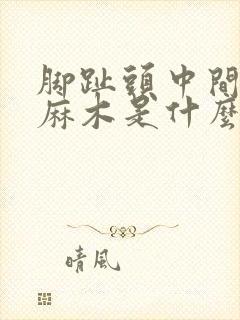 脚趾頭中間
麻木是什麼
晴風